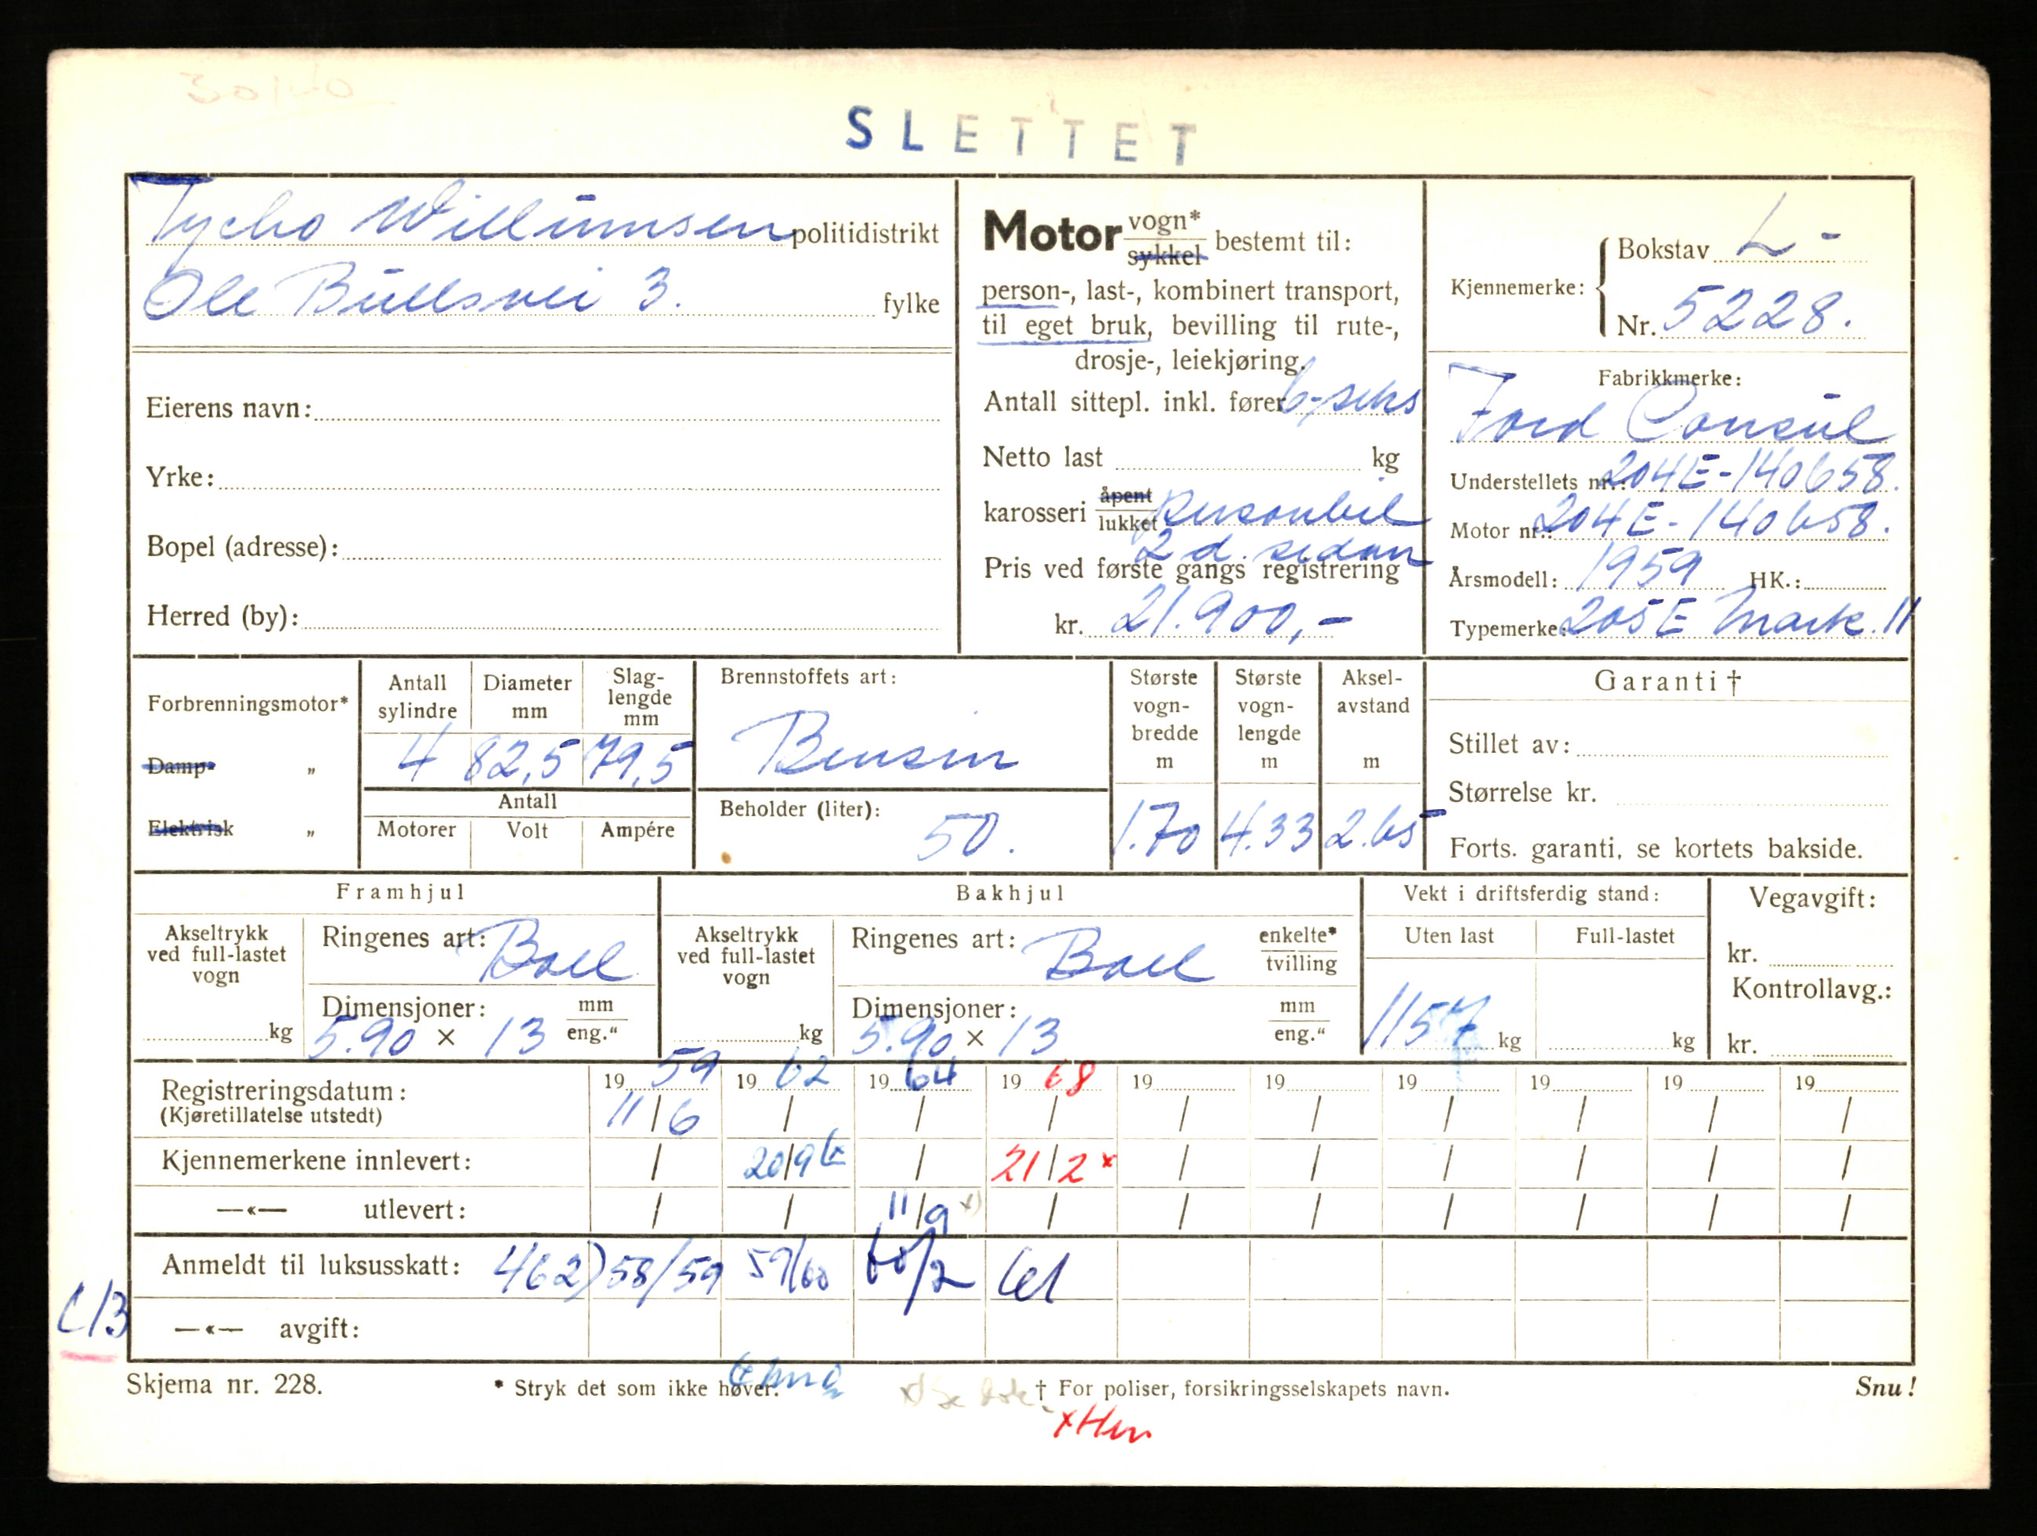 SLETTET
Tycho Willumsen politidistrikt
Ole Bullsvei 3. fylke
Eierens navn:
Yrke:
Bopel (adresse):
Herred (by):
Motor vogn* sykkel bestemt til:
person-, last-, kombinert transport,
til eget bruk, bevilling til rute-,
drosje-, leiekjøring.
Antall sittepl. inkl. fører 6-seks
Netto last kg
karosseri åpent lukket personbil
2 d. sedan
Pris ved første gangs registrering
kr. 21.900,-
Kjennemerke: Bokstav L-
Nr. 5228.
Fabrikkmerke:
Ford Consul
Understellets nr.: 204E-140658.
Motor nr.: 204E-140658.
Årsmodell: 1959 HK.:
Typemerke: 205E Mark. 11
Forbrenningsmotor*
Damp- „
Elektrisk „
Antall sylindre
Diameter mm
Slag-lengde mm
4 82,5 79,5
Antall
Motorer Volt Ampére
Brennstoffets art:
Bensin
Beholder (liter):
50.
Største vogn-bredde m
1.70
Største vogn-lengde m
4.33
Aksel-avstand m
2.65
Garanti †
Stillet av:
Størrelse kr.
Forts. garanti, se kortets bakside.
Framhjul
Akseltrykk ved full-lastet vogn
kg
Ringenes art: Ball
Dimensjoner: mm
5.90 × 13 eng."
Bakhjul
Akseltrykk ved full-lastet vogn
kg
Ringenes art: Ball enkelte* tvilling
Dimensjoner: mm
5.90 × 13 eng."
Vekt i driftsferdig stand:
Uten last Full-lastet
1157 kg kg
Vegavgift:
kr.
Kontrollavg.:
kr.
Registreringsdatum: 19 59 19 62 19 64 19 68 19 19 19 19 19 19
(Kjøretillatelse utstedt) 11/6 / / / / / / / / /
Kjennemerkene innlevert: / 20/9 / 21/2 x / / / / / /
—«— utlevert: / / 11/9 x) / / / / / / /
Anmeldt til luksusskatt: 462) 58/59 59/60 60/2 61
C13
—«— avgift:
Skjema nr. 228.
* Stryk det som ikke høver.
† For poliser, forsikringsselskapets navn.
Snu!